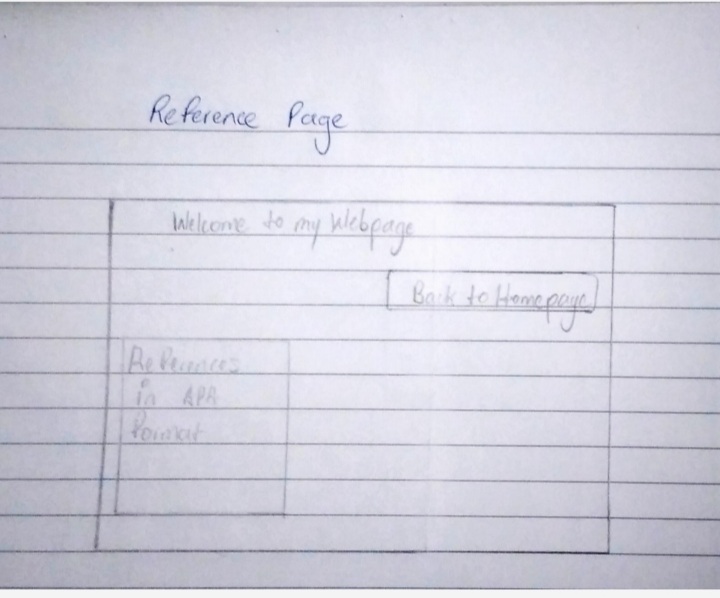 Reference Page
Welcome to my Webpage
Back to Homepage
References
in APA
format